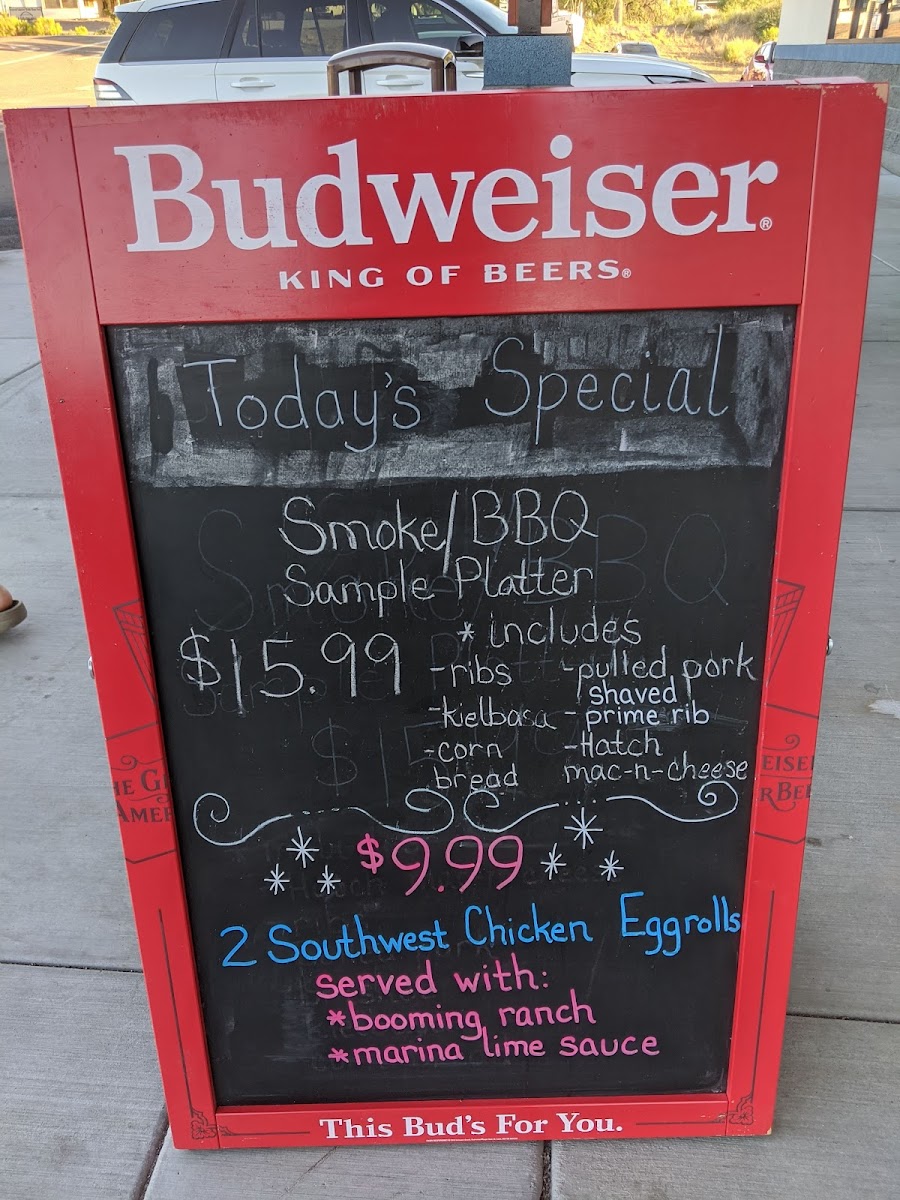 Budweiser®
KING OF BEERS®
Today's Special
Smoke/BBQ
Sample Platter
$15.99
* includes
-ribs
-kielbasa
-corn
bread
-pulled pork
shaved
- prime rib
-Hatch
mac-n-cheese
$9.99
2 Southwest Chicken Eggrolls
served with:
*booming ranch
*marina lime sauce
This Bud's For You.